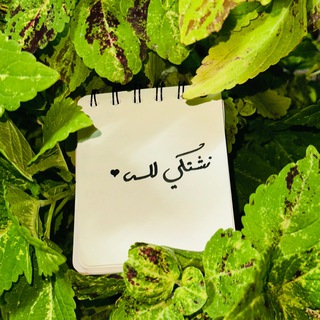 نشتكي لله ♥